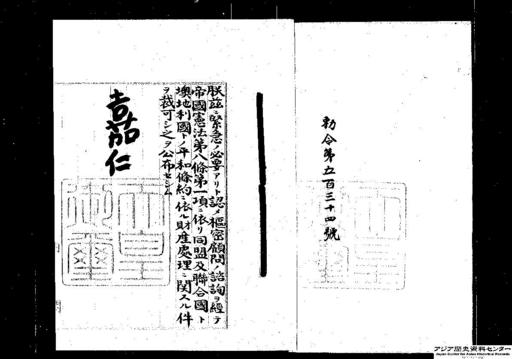 勅令第五百三十四號
朕茲ニ緊急ノ必要アリト認メ樞密顧問ノ諮詢ヲ經テ
帝國憲法第八條第一項ニ依リ同盟及聯合國ト
墺地利國トノ平和條約ニ依ル財產處理ニ關スル件
ヲ裁可シ之ヲ公布セシム
嘉仁
天皇御璽
アジア歴史資料センター
Japan Center for Asian Historical Records